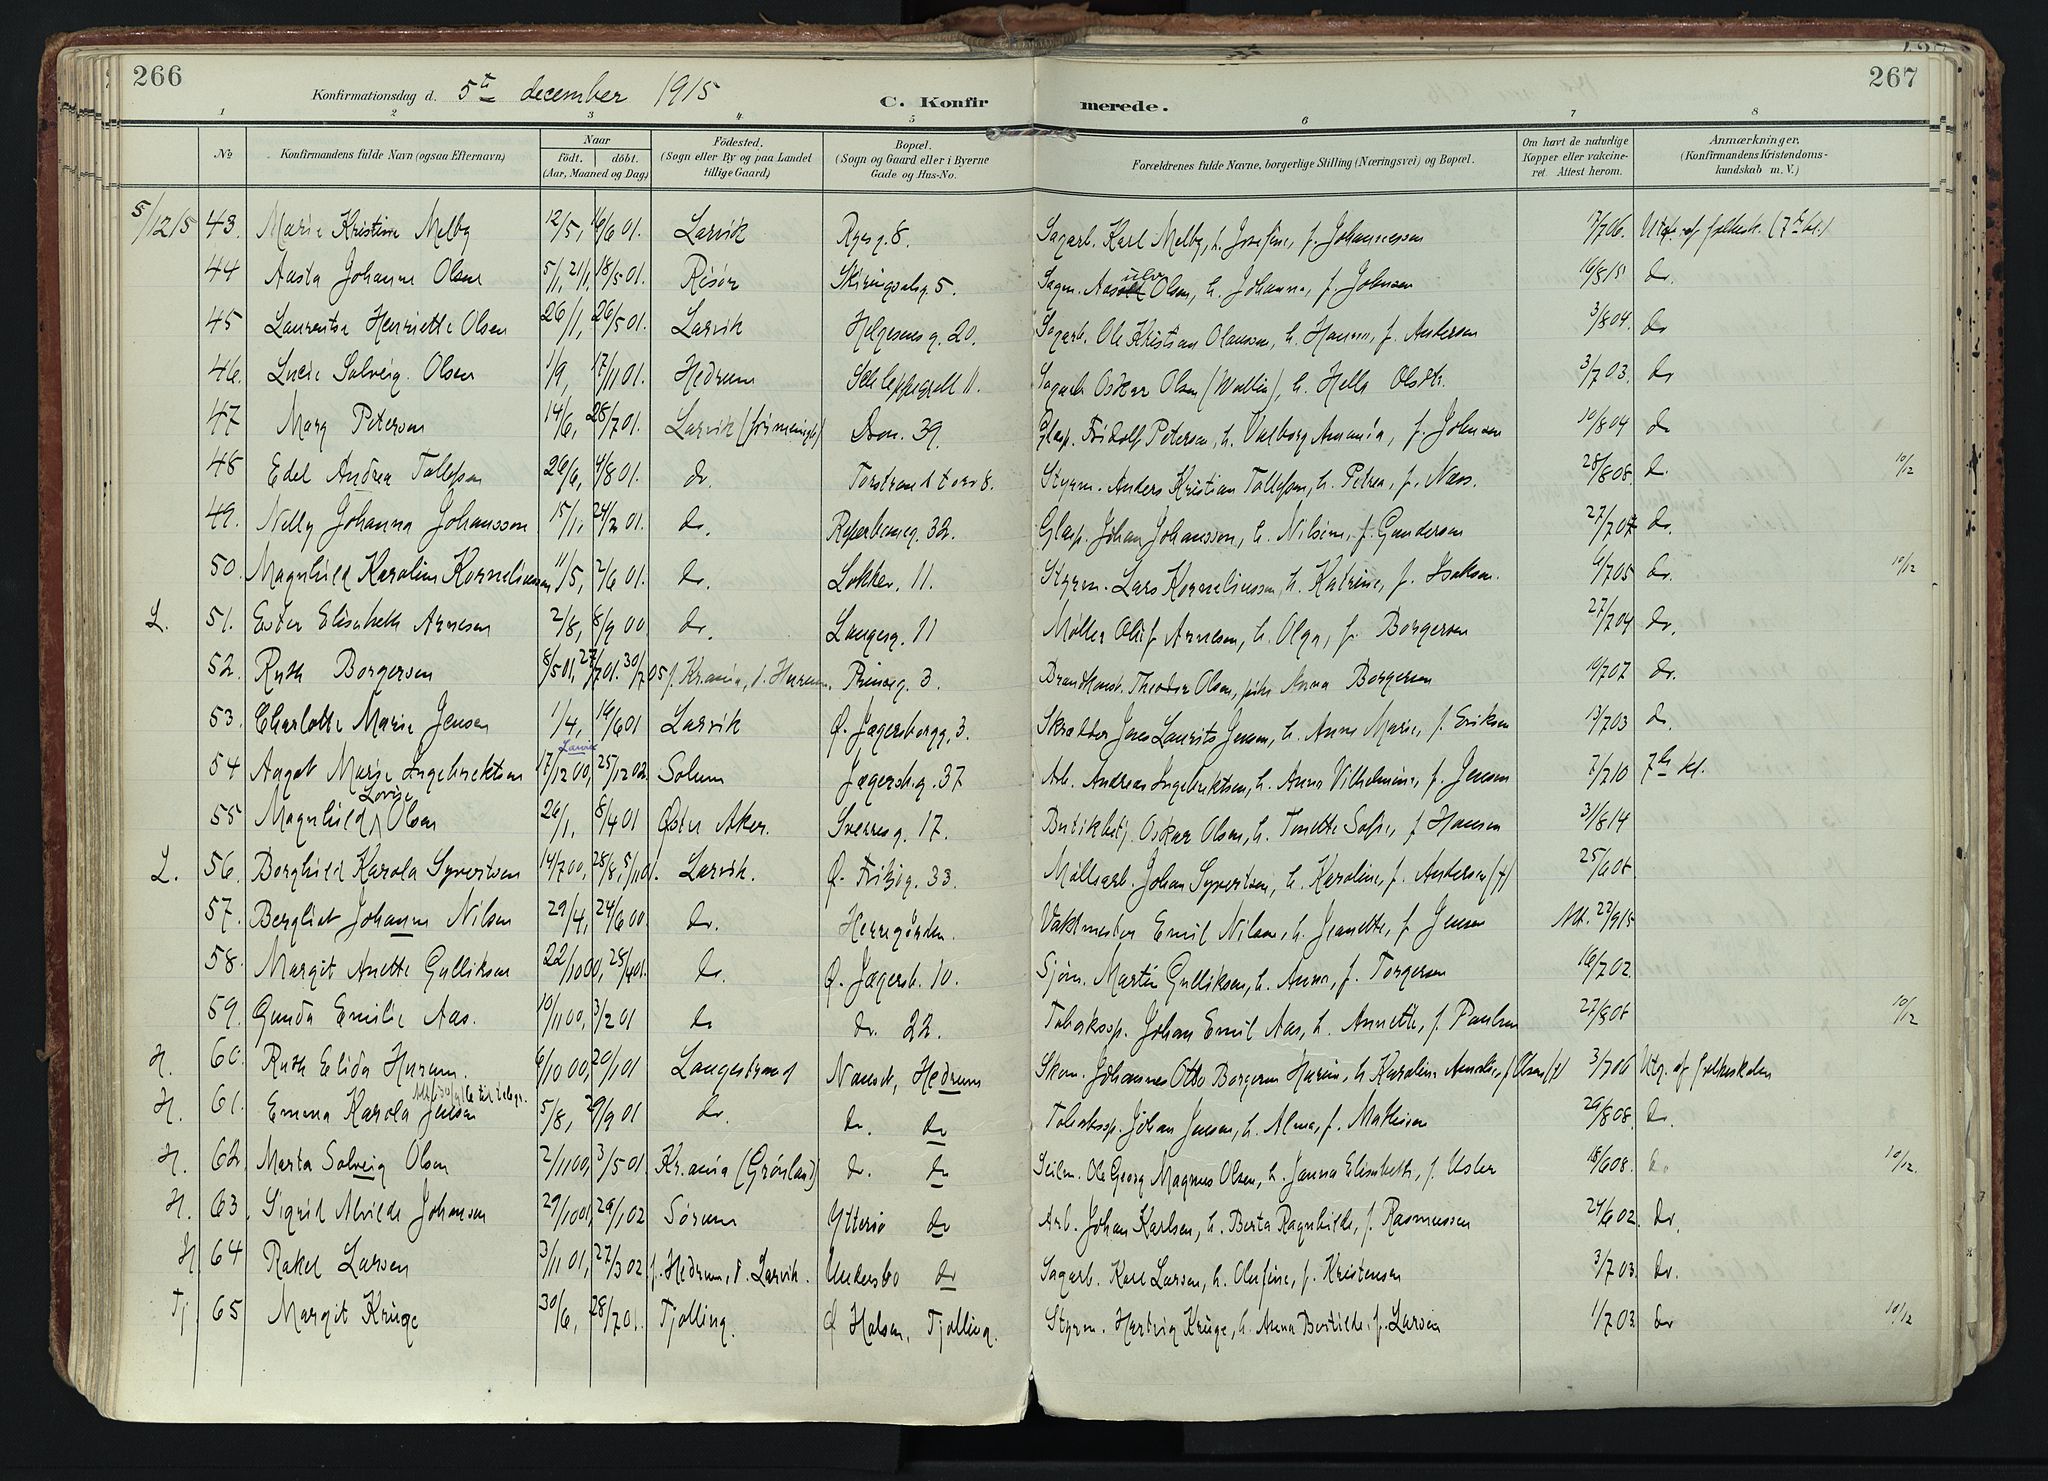 266
267
Konfirmationsdag d. 5te december 1915
C. Konfirmerede.
1 2 3 4 5 6 7 8
No.
Konfirmandens fulde Navn (ogsaa Efternavn)
Naar
født. døbt.
(Aar, Maaned og Dag)
Fødested.
(Sogn eller By og paa Landet
tillige Gaard)
Bopæl.
(Sogn og Gaard eller i Byerne
Gade og Hus-No.
Forældrenes fulde Navne, borgerlige Stilling (Næringsvei) og Bopæl.
Om havt de naturlige
Kopper eller vakcine-
ret. Attest herom.
Anmærkninger.
(Konfirmandens Kristendoms-
kundskab m. V.)
5/12 15 43. Marie Kristine Melby 12/5, 16/6 01. Larvik Ryesg. 8. Sagarb. Karl Melby, h. Josefine, f. Johannessen 7/7 06. Utg. af folkesk. (7de kl.)
44 Aasta Johanne Olsen 5/1, 21/1, 18/5 01. Risør Skiringsalsg. 5. Sagm. Aasulv Olsen, h. Johanna, f. Johnsen 16/8 15 do.
45 Laurentse Henriette Olsen 26/1, 26/5 01. Larvik Helgesensg. 20. Sagarb. Ole Kristian Olaussen, h. Hanna, f. Andersen 3/8 04. do
46. Lucie Solveig Olsen 1/9, 17/11 01. Hedrum Schleppegrell 11. Sagarb Oskar Olsen (Wallin), h. Hella Olsdtr. 3/7 03. do
47 Mary Petersen 14/6, 28/7 01. Larvik Dron. 39. Glasp. Fridolf Petersen, h. Valborg Amanda, f. Johnsen 10/8 04 do
48 Edel Andrea Tollefsen 26/6, 4/8 01. do. Torstrand torv 8. Styrm. Anders Kristian Tollefsen, h. Petrea, f. Næss. 28/8 08. do. 10/12
49. Nelly Johanna Johansson 15/1, 24/2 01. do. Reperbaneg. 32. Glasp. Johan Johansson, h. Nilsine, f. Gundersen 27/7 07 do.
50. Magnhild Karoline Korneliussen 11/5, 2/6 01. do. Lokker. 11. Styrm. Lars Korneliussen, h. Katrine, f. Isaksen. 6/7 05 do. 10/12
L. 51. Ester Elisabeth Arnesen 2/8, 8/9 00 do. Langesg. 11 Møller Oluf Arnesen, h. Olga, f. Borgersen 27/7 04 do.
52. Ruth Borgersen 8/5 01, 27/7 01. 30/7 05 f. Kr.ania, d. Hurum. Prinseg. 3. Brandkonst. Theodor Olsen, pike Anna Borgersen 19/7 07 do.
53. Charlotte Marie Jensen 1/4, 16/6 01 Larvik Ø. Jægersborgg. 3. Skrædder Jens Laurits Jensen, h. Anna Marie, f. Eriksen 13/7 03 do.
54 Aagot Marie Ingebrektsen 17/12 00, Larvik 25/12 02. Solum Jægersb.g. 37 Arb. Andreas Ingebrektsen, h. Anna Vilhelmine, f. Jensen 7/7 10 7de kl.
55 Magnhild Lovise Olsen 26/1, 8/4 01 Østre Aker. Sverresg. 17. Butikbetj. Oskar Olsen, h. Tonette Sofie, f Hansen 31/8 14
L. 56. Borghild Karola Syvertsen 14/7 00, 28/8, 5/11 01. Larvik. Ø. Fritzøg. 33. Møllearb. Johan Syvertsen, h. Karoline, f. Andersen (†) 25/6 08
57. Bergliot Johanne Nilsen 29/4, 24/6 00. do. Herregården. Vaktmester Emil Nilsen, h. Jeanette, f. Jensen Att. 22/9 15
58. Margit Anette Gulliksen 22/10 00, 28/4 01. do. Ø. Jægersb. 10. Sjøm. Martin Gulliksen, h. Anna, f. Torgersen 16/7 02.
59. Gunda Emilie Aas. 10/11 00, 3/2 01 do do. 22. Tobaksop. Johan Emil Aas, h. Annette, f. Paulsen 27/8 08 10/12
H. 60. Ruth Elida Hurum. 6/10 00, 20/1 01 Langestrand Nanset, Hedrum Skom. Johannes Otto Borgersen Hurum, h Karoline Amalie, f Olsen (†) 3/7 06 Utg. af folkeskolen
H. 61. Emma Karola Jensen 5/8, 29/9 01 do. do. do Tobaksop. Johan Jensen, h. Alma, f. Mathisen 29/8 08. do.
H. 62. Marta Solveig Olsen 2/11 00, 3/5 01. Kr.ania (Grønland) do. do Seilm. Ole Georg Magnus Olsen, h. Janna Elisabeth, f. Usler 18/6 08. do 10/12.
H. 63. Sigrid Alvilde Johansen 29/10 01, 29/1 02 Sørum Yttersø do Arb. Johan Karlsen, h. Berta Ragnhilde, f. Rasmussen 24/6 02. do.
H 64 Rakel Larsen 3/11 01, 27/3 02 f. Hedrum, d. Larvik. Undersbo do Sagarb. Karl Larsen, h. Olufine, f. Kristensen 3/7 03. do.
Tj. 65 Margit Krüge 30/6, 28/7 01. Tjølling. Ø Halsen, Tjølling. Styrm. Hartvig Krüge, h. Anna Bertilde, f. Larsen 1/7 03 do 10/12